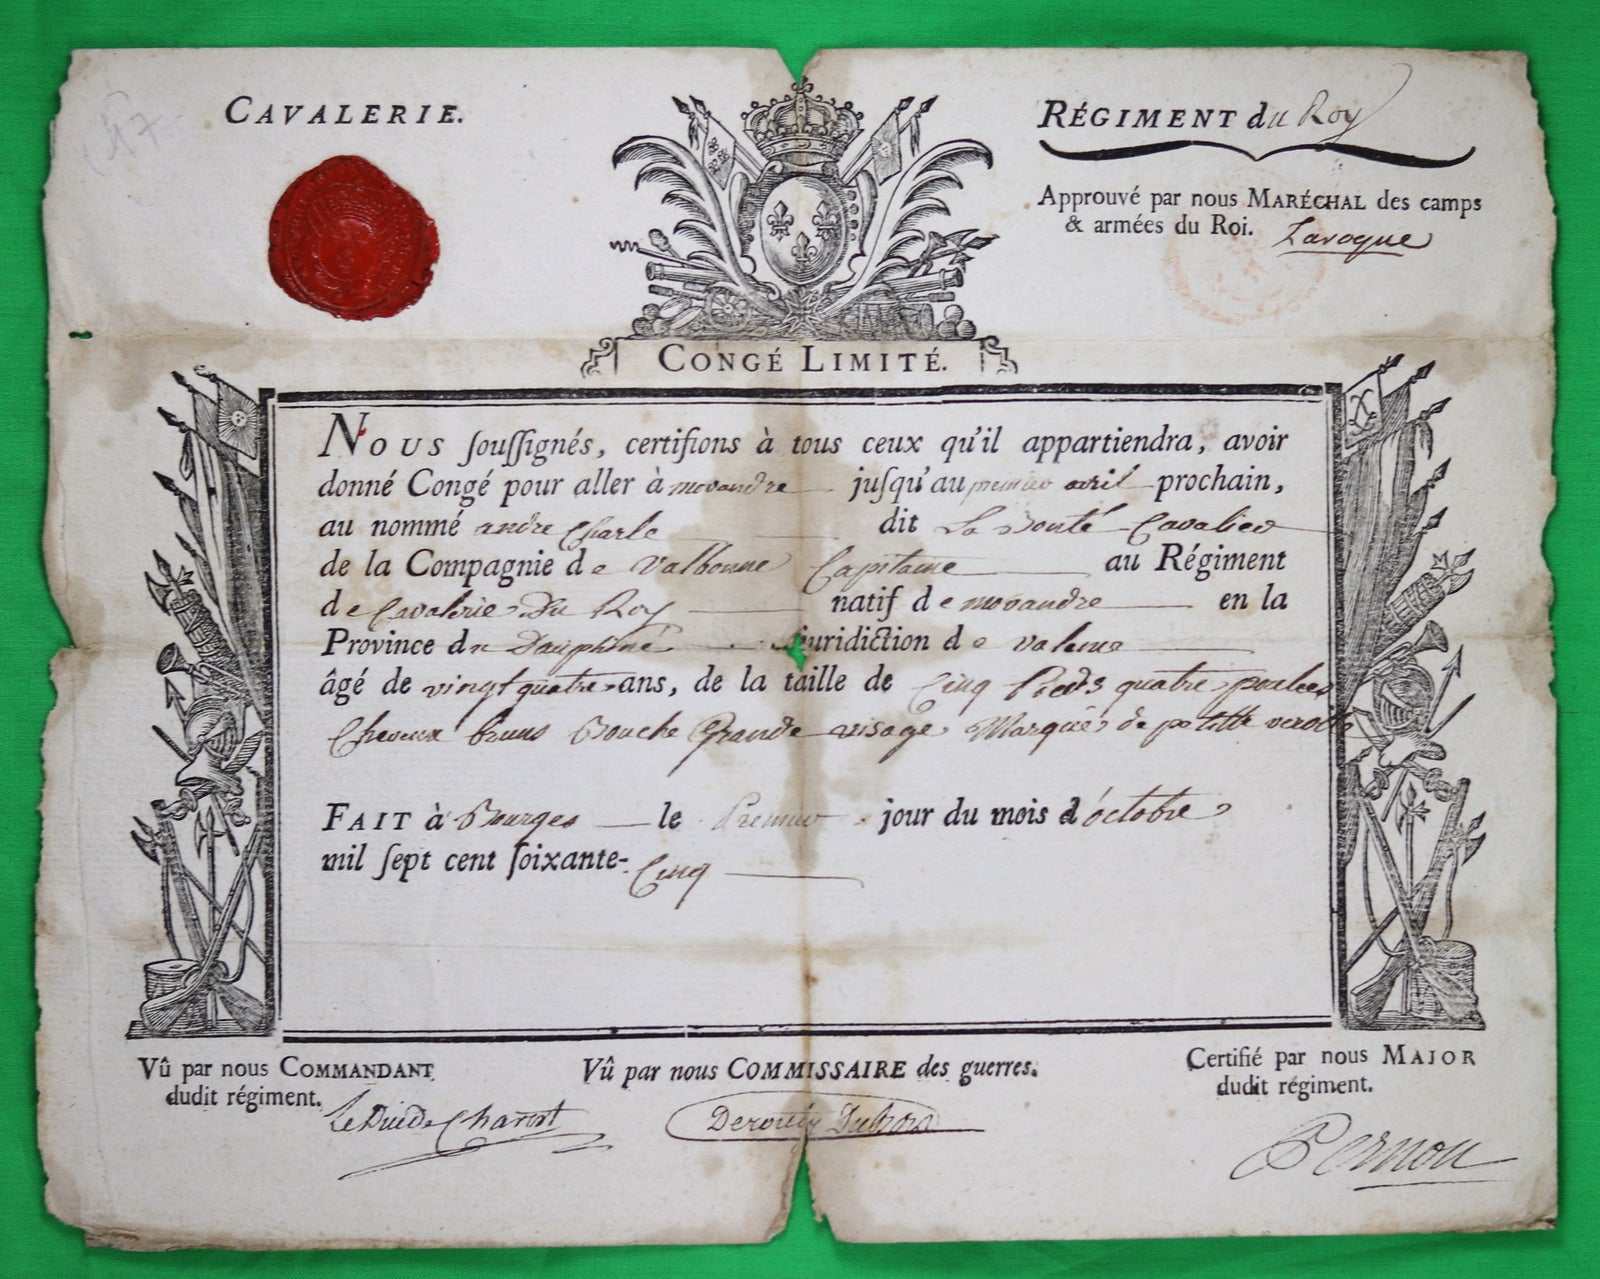 CAVALERIE.
RÉGIMENT du Roy
Approuvé par nous MARÉCHAL des camps
& armées du Roi. Laroque
CONGÉ LIMITÉ.
NOUS souſſignés, certifions à tous ceux qu'il appartiendra, avoir
donné Congé pour aller à movandre juſqu'au premier avril prochain,
au nommé andre Charle dit La Bonté Cavalier
de la Compagnie de Valbonne Capitaine au Régiment
de Cavalerie Du Roy natif de movandre en la
Province du Dauphiné juridiction de valence
âgé de vingt quatre ans, de la taille de Cinq Pieds quatre poulces
Cheveux bruns Bouche Grande visage Marqué de petitte verolle
FAIT à Bourges le Premier jour du mois d'octobre
mil ſept cent ſoixante-Cinq
Vû par nous COMMANDANT
dudit régiment.
Le Duc de Charost
Vû par nous COMMISSAIRE des guerres.
Certifié par nous MAJOR
dudit régiment.
Pernon